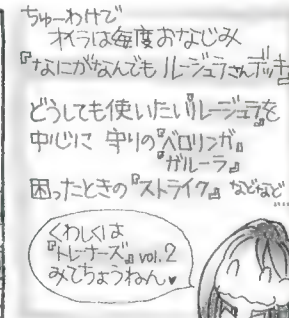 ちゅーわけで
オイラは毎度おなじみ
『なにがなんでも ルージュラさんデッキ』
どうしても使いたいルージュラを
中心に 守りの『ベロリンガ』
『ガルーラ』
困ったときの『ストライク』などなど
…
くわしくは
『トレーナーズ』vol.2
みてちょうねん♥